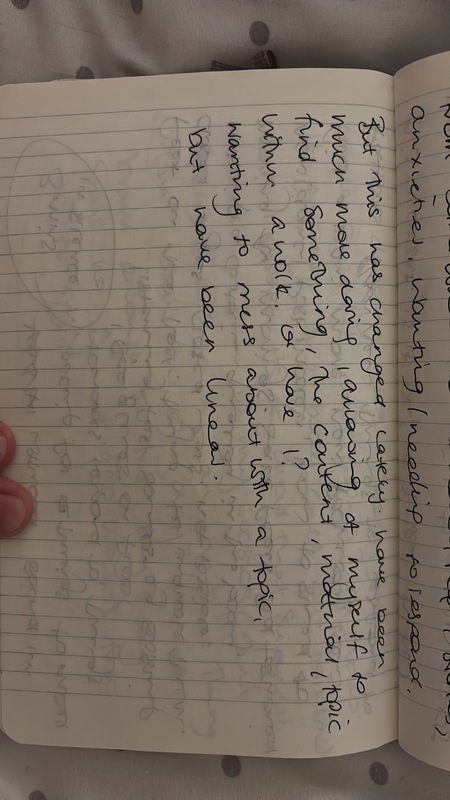 anxieties, wanting / needing to respond.
But this has changed lately. have been
much more daring, allowing of myself to
find something, the content, material, topic
within a work. or have I?
wanting to mess about with a topic,
but have been linear.